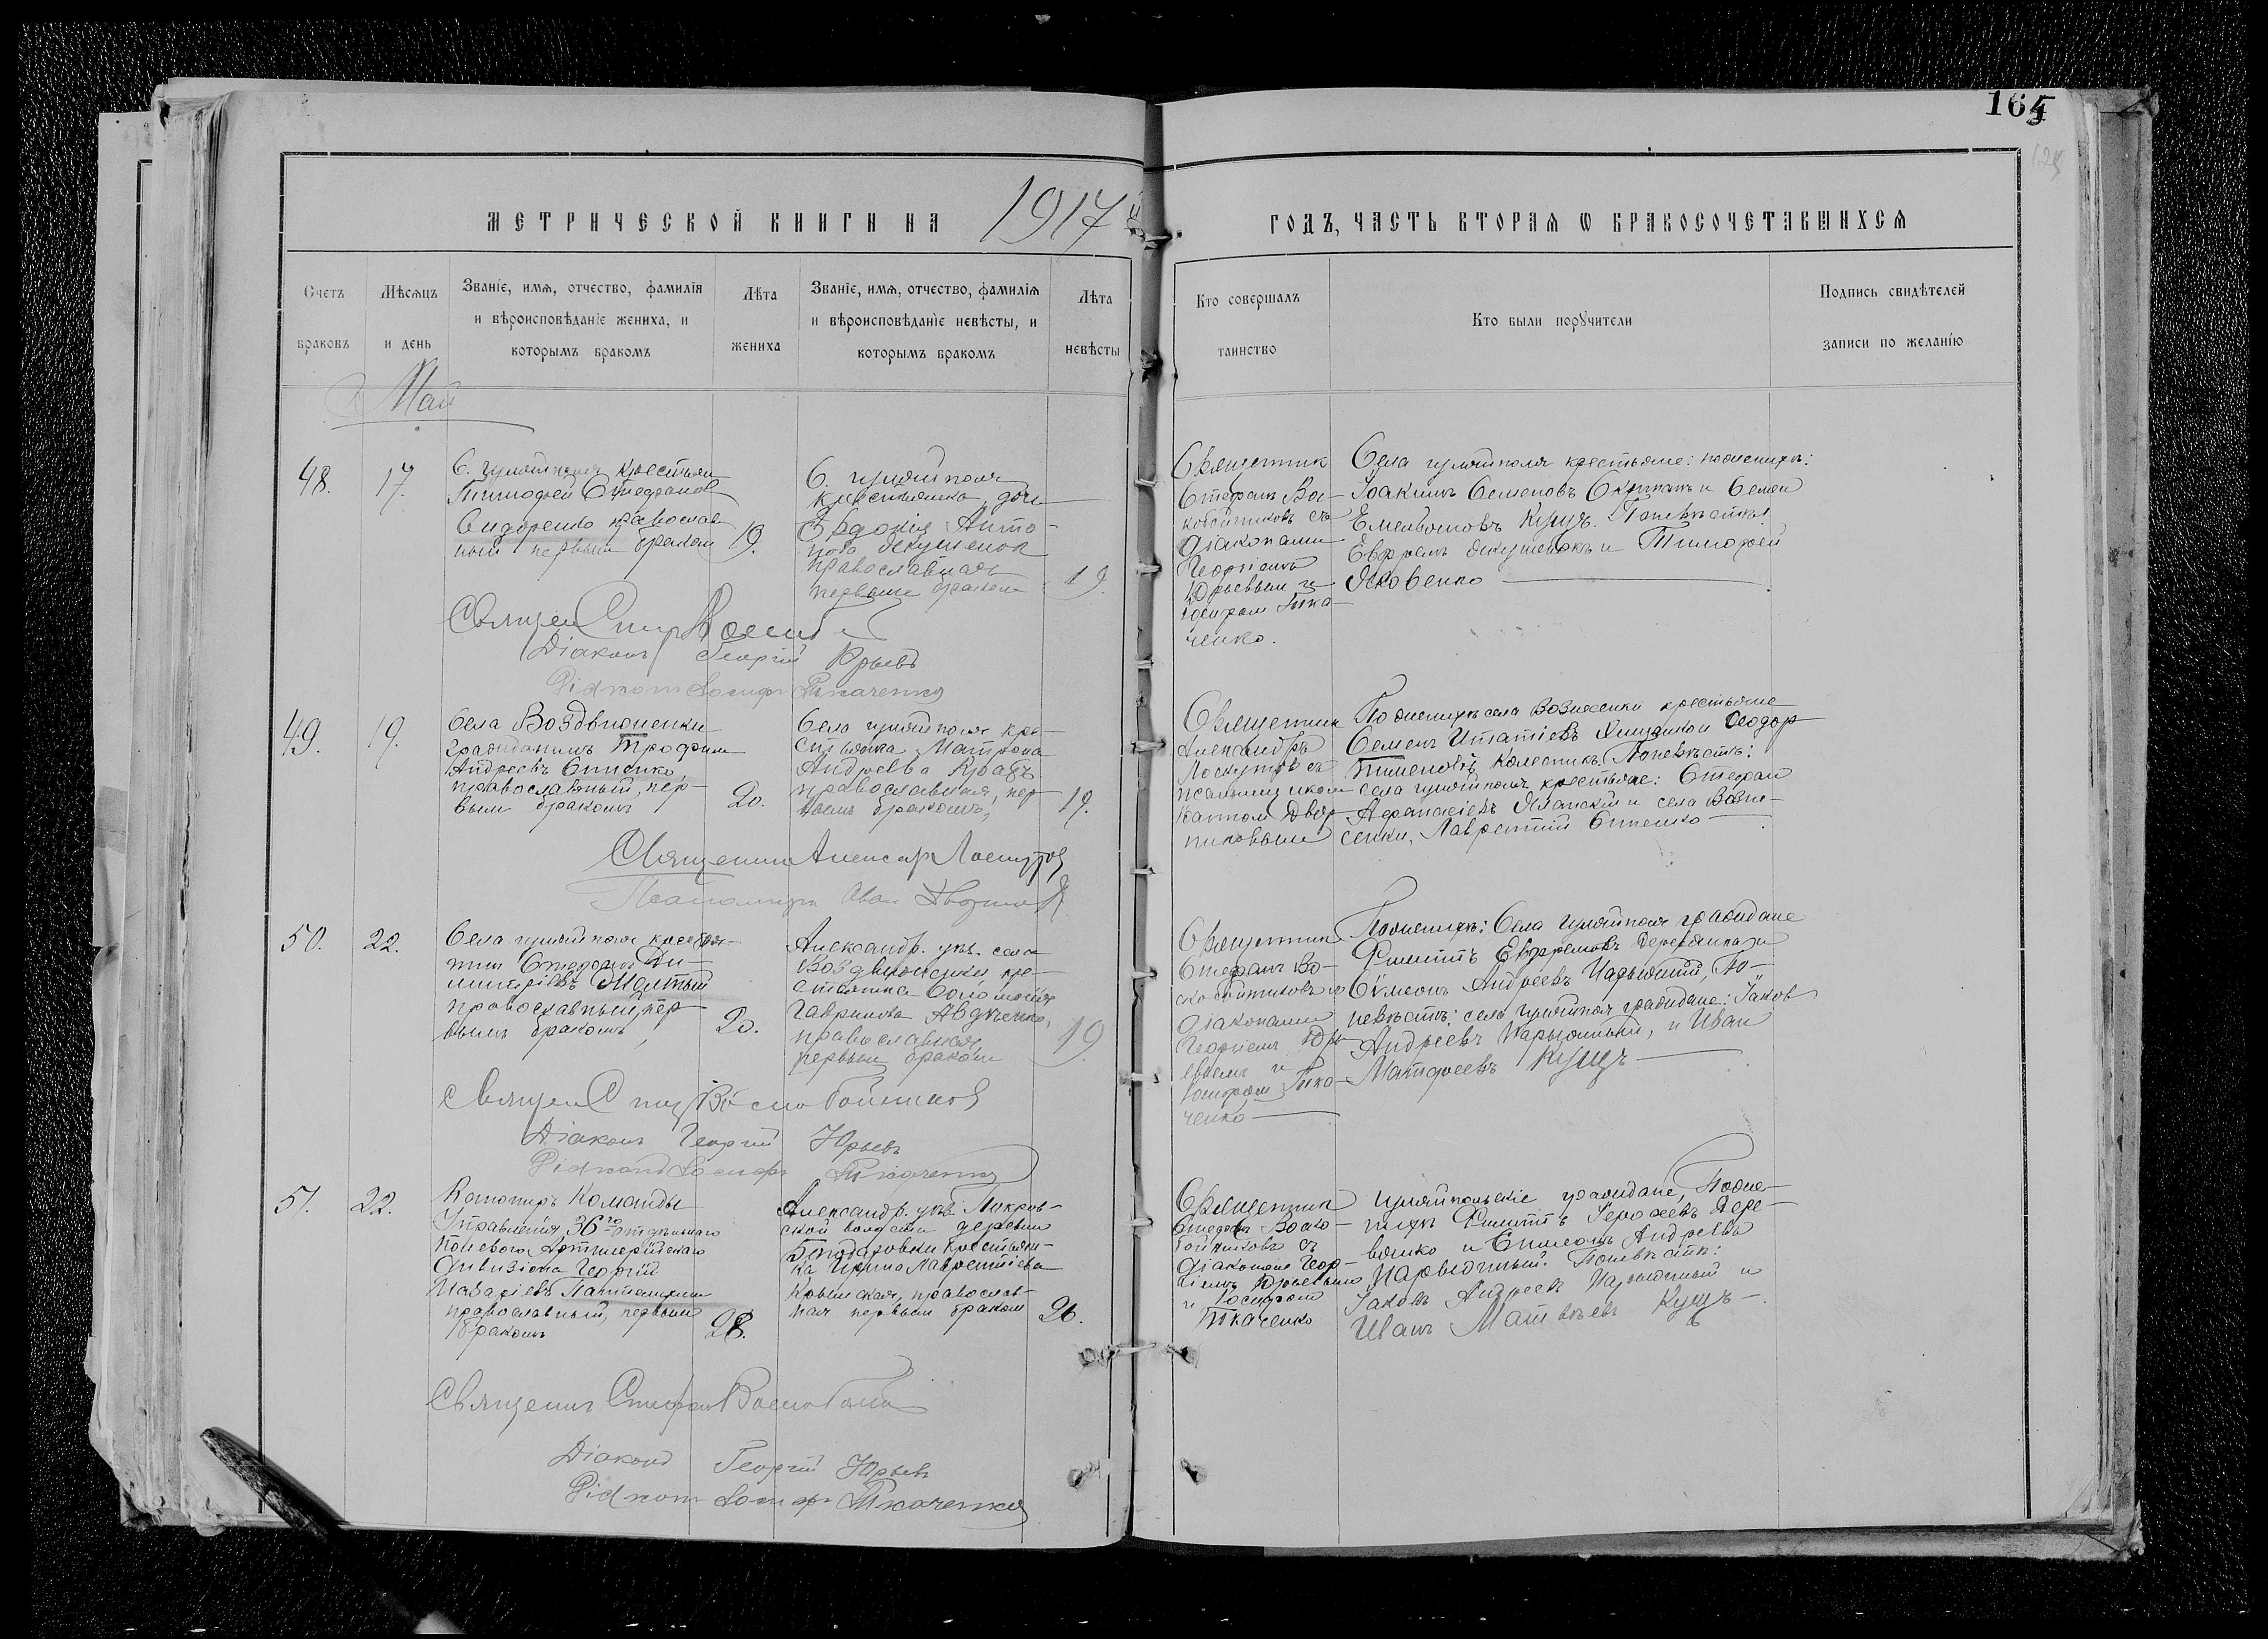 165
МЕТРИЧЕСКОЙ КНИГИ НА 1917 й
ГОДЪ, ЧАСТЬ ВТОРАЯ Ѡ БРАКОСОЧЕТАВШИХСЯ
Счетъ
браковъ
Мѣсяцъ
и день
Званіе, имя, отчество, фамилія
и вѣроисповѣданіе жениха, и
которымъ бракомъ
Лѣта
жениха
Званіе, имя, отчество, фамилія
и вѣроисповѣданіе невѣсты, и
которымъ бракомъ
Лѣта
невѣсты
Кто совершалъ
таинство
Кто были поручители
Подпись свидѣтелей
записи по желанію
Май
48.
17.
С. Гуляйполя крестьян
Тимофей Стефанов
Сидоренко православ
ный первым браком
19.
С. Гуляйполя
крестьянка дочь
Евдокія Анто-
нова
православная
первым браком
19.
Священник
Стефан Вос-
кобойниковъ съ
діаконами
Георгіемъ
Юрьевым и
Іосифом Тка-
ченко.
Села Гуляйполя крестьяне: по женихѣ:
Іоаким Семеновъ и Семен
Емельяновъ Кущъ. По невѣстѣ:
Ефрем и Тимофей
Яковенко
Священ Стеф
Діаконъ Георгій Юрьевъ
Діаконъ Іосифъ Ткаченко
49.
19.
Села Воздвиженки
гражданинъ Трофим
Андреевъ Епненко,
православный, пер-
вым бракомъ
20.
Села Гуляйполя кре-
стьянка Матрона
Андреева Кравъ
православная, пер-
вымъ бракомъ,
19.
Священник
Александръ
Лоскутов съ
псаломщиком
Іоанном Двор-
никовым
По женихѣ села Воздвиженки крестьяне
Семен Игнатіевъ и Ѳеодор
Пименовъ Колесник. По невѣстѣ:
села Гуляйполя крестьяне: Стефан
Афанасіевъ и села Воздви-
женки, Лаврентій Епненко
Священник Александр Лоскутов
Псаломщик Иван Дворников
50.
22.
Села Гуляйполя крестья-
нин Стефанъ Ди-
митріевъ Желтый
православный, пер
вымъ бракомъ,
20.
Александр. уѣз. села
Воздвиженки кре-
стьянка Соломонія
Гавриилова Авдѣенко,
православная
первым браком
19.
Священник
Стефанъ Во-
скобойниковъ съ
діаконами
Георгіем Юрь
евымъ и
Іосифом Тка-
ченко
По женихѣ: Села Гуляйполя граждане
Филиппъ Ефремовъ Деревянко и
Сѵмеонъ Андреевъ Царьодный, По-
невѣстѣ: села Гуляйполя граждане: Іаков
Андреевъ и Иван
Матфеевъ Кущъ
Священ Стеф Воскобойников
Діаконъ Георгій Юрьевъ
Діаконъ Іосифъ Ткаченко
51.
22.
Канониръ Команды
Управленія 36го отдѣльнаго
полевого Артиллерійскаго
дивизіона Георгій
православный, первым
бракомъ
28.
Александр. уѣз. Покров-
ской волости деревни
крестьян-
ка Ирина Лаврентіева
Крымская, православ-
ная первым браком
26.
Священник
Стефан Воско-
бойниковъ съ
діаконами Геор-
гіемъ Юрьевым
и Іосифом
Ткаченко
Гуляйпольскіе граждане, По же-
нихѣ Филиппъ Дере-
вянко и Симеонъ Андреевъ
По невѣстѣ:
Іаковъ Андреев и
Иванъ Матвѣевъ Кущъ
Священик Стефан Воскобой
Діаконъ Георгій Юрьевъ
Діаконъ Іосифъ Ткаченко